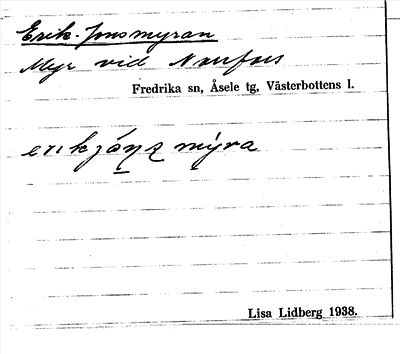 Erik-Jonsmyran
Myr vid
Fredrika sn, Åsele tg, Västerbottens l.
Lisa Lidberg 1938.